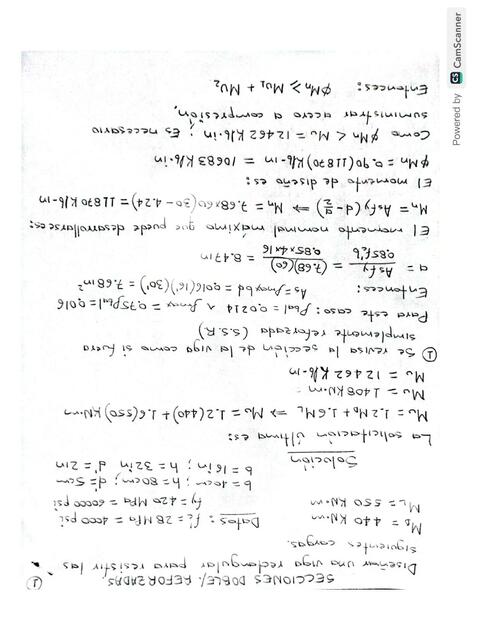 SECCIONES DOBLE/ REFORZADAS ①
Diseñar una viga rectangular para resistir las
siguientes cargas.
M_D = 440 KN·m
M_L = 550 KN·m
Datos: f'c = 28 MPa = 4000 psi
fy = 420 MPa = 60000 psi
b = 40cm; h = 80cm; d' = 5cm
b = 16in; h = 32in d' = 2in
Solución
La solicitación última es:
Mu = 1.2 MD + 1.6 ML ⇒ Mu = 1.2(440) + 1.6(550) KN·m
Mu = 1408 KN·m
Mu = 12462 K/b·in
① Se revisa la sección de la viga como si fuera
simplemente reforzada (S.S.R.)
Para este caso: ρbal = 0,0214 ∧ ρmax = 0.75ρbal = 0,016
Entonces: As = ρmax bd = 0,016(16")(30") = 7.68 in²
a = Asfy / 0.85f'c b = (7.68)(60) / 0.85x4x16 = 8.47in
El momento nominal máximo que puede desarrollarse es:
Mn = Asfy(d - a/2) ⇒ Mn = 7.68x60(30 - 4.24) = 11870 K/b·in
El momento de diseño es:
ØMn = 0.90(11870) K/b·in = 10683 K/b·in
Como ØMn < Mu = 12462 K/b·in ; Es necesario
suministrar acero a compresión,
Entonces: ØMn ≥ Mu1 + Mu2
Powered by CS CamScanner